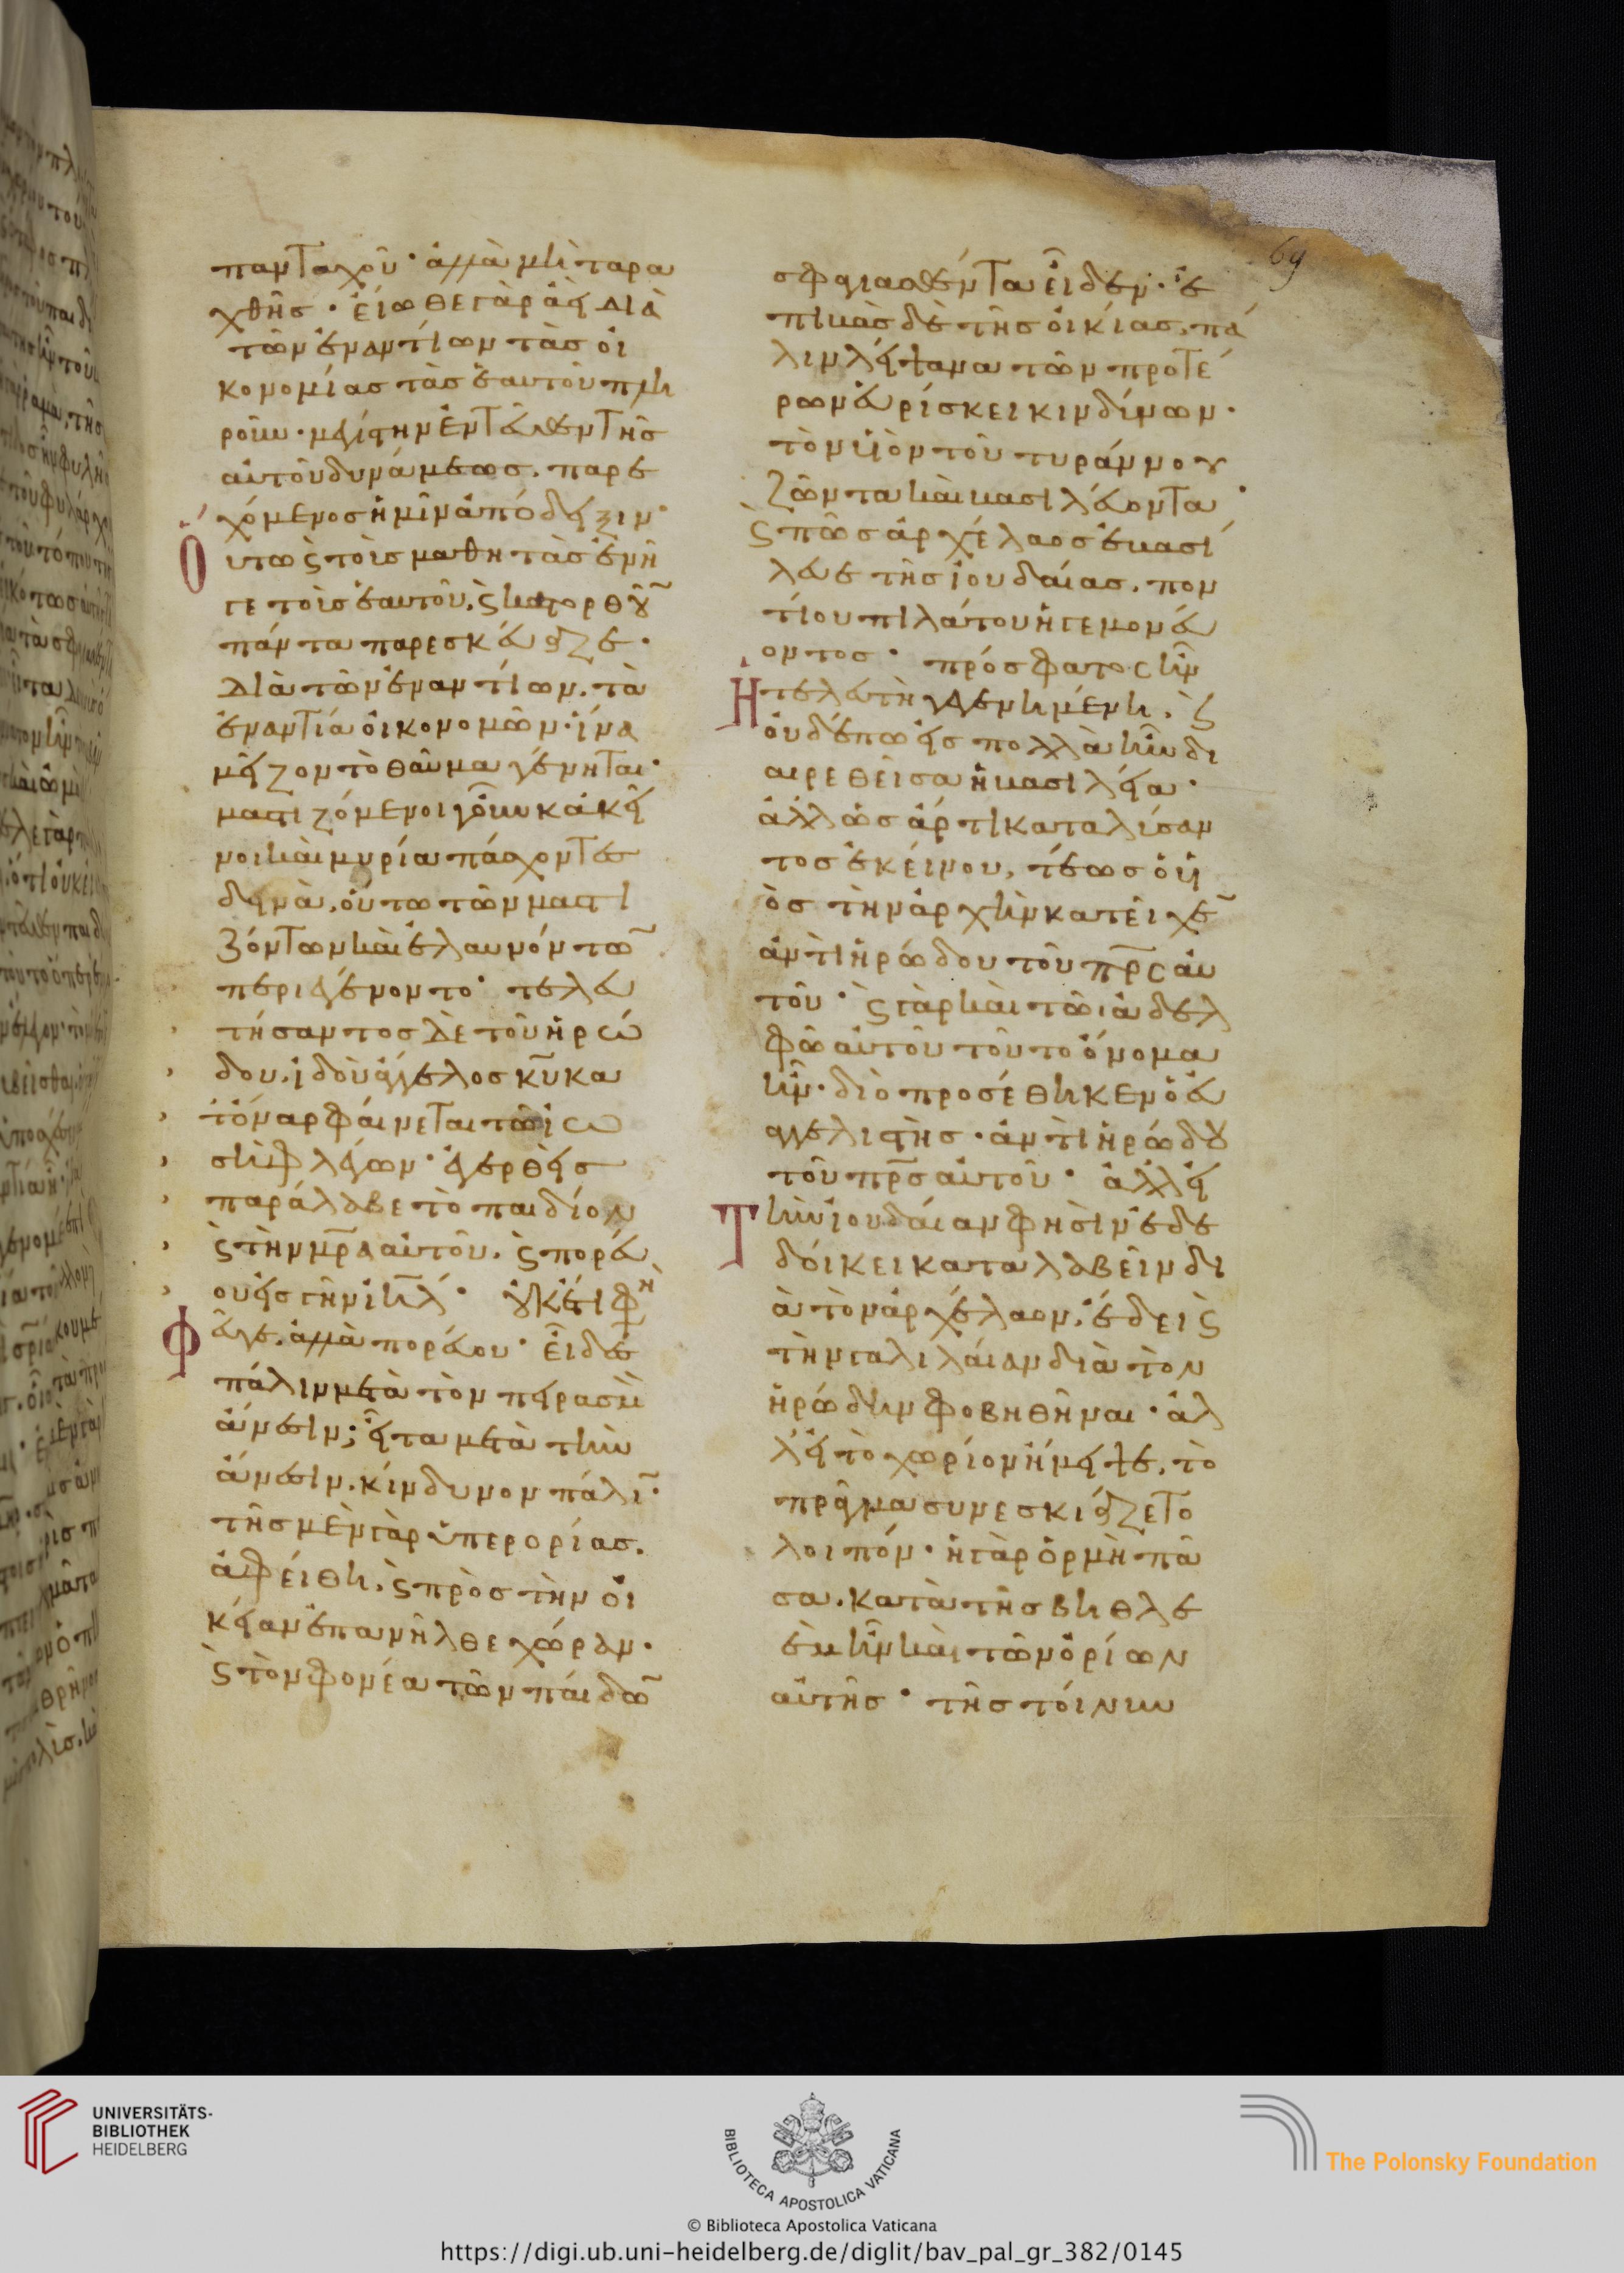 πανταχοῦ· ἀλλὰ μὴ ταρα
χθῆς· εἴωθε γὰρ ἀεὶ διὰ
τῶν ἐναντίων τὰς οἰ
κονομίας τὰς ἑαυτοῦ πλη
ροῦν· μεγίστην ἐντεῦθεν τῆς
αὐτοῦ δυνάμεως, παρε
χόμενος ἡμῖν ἀπόδειξιν·
Οὕτω ς τοὺς μαθητὰς ἐνῆ
γε τοὺς ἑαυτοῦ, ς κατορθοῦν
πάντα παρεσκεύαζε·
διὰ τῶν ἐναντίων, τὰ
ἐναντία οἰκονομῶν· ἵνα
μεῖζον τὸ θαῦμα γένηται·
μαστιζόμενοι γοῦν κἀκεῖ
νοι καὶ μυρία πάσχοντες
δεινὰ, οὕτω τῶν μαστι
ζόντων καὶ ἐλαυνόντω̅
περιεγένοντο· τελευ
τήσαντος δὲ τοῦ ἡρώ
δου, ἰδοὺ ἄγγελος κυ̅ κα
τ' ὄναρ φαίνεται τῶ ἰω
σὴφ λέγων· ἐγερθεὶς
παράλαβε τὸ παιδίον
ς τὴν μρ̅α αὐτοῦ, ς πορεύ
ου εἰς γῆν ιη̅λ· οὐκέτι φη
Φεῦγε, ἀλλὰ πορεύου· εἶδες
πάλιν μετὰ τὸν πειρασμὸν
ἄνεσιν; εἶτα μετὰ τὴν
ἄνεσιν, κίνδυνον πάλι̅·
τῆς μὲν γὰρ ὑπερορίας,
ἀφείθη, ς πρὸς τὴν οἰ
κείαν ἐπανῆλθε χώραν·
ς τὸν φονέα τῶν παίδω̅
σφαγιασθέντα εἶδεν· ἐ
πιβὰς δὲ τῆς οἰκίας, πά
λιν λείψανα τῶν προτέ
ρων εὑρίσκει κινδύνων·
τὸν υἱὸν τοῦ τυράννου
ζῶντα καὶ βασιλεύοντα·
ς πῶς ἀρχέλαος ἐβασί
λευε τῆς ἰουδαίας, πον
τίου πιλάτου ἡγεμονεύ
οντος· πρόσφατος ἦν
Ἡ τελευτὴ γεγενημένη, ς
οὐδέπω εἰς πολλὰ ἦν δι
αιρεθεῖσα ἡ βασιλεία·
ἀλλ' ὡς ἄρτι καταλύσαν
τος ἐκείνου, τέως ὁ υἱ
ὸς τὴν ἀρχὴν κατεῖχε̅
ἀντὶ ἡρώδου τοῦ πρ̅ς αὐ
τοῦ· ς γὰρ καὶ τῶ ἀδελ
φῶ αὐτοῦ τοῦτο ὄνομα
ἦν· διὸ προσέθηκεν ὁ εὐ
αγγελιστὴς· ἀντὶ ἡρώδου
τοῦ πρ̅ς αὐτοῦ· ἀλλ' εἰ
Τὴν ἰουδαίαν φησὶν ἐδε
δοίκει καταλαβεῖν δι
ὰ τὸν ἀρχέλαον, ἔδει ς
τὴν γαλιλαίαν διὰ τὸν
ἡρώδην φοβηθῆναι· ἀλ
λ' εἰ τὸ χωρίον ἤμειψε, τὸ
πρᾶγμα συνεσκιάζετο
λοιπόν· ἡ γὰρ ὁρμὴ πᾶ
σα, κατὰ τῆς βηθλε
ὲμ ἦν καὶ τῶν ὁρίων
αὐτῆς· τῆς τοίνυν
69
UNIVERSITÄTS-
BIBLIOTHEK
HEIDELBERG
BIBLIOTECA APOSTOLICA VATICANA
The Polonsky Foundation
© Biblioteca Apostolica Vaticana
https://digi.ub.uni-heidelberg.de/diglit/bav_pal_gr_382/0145